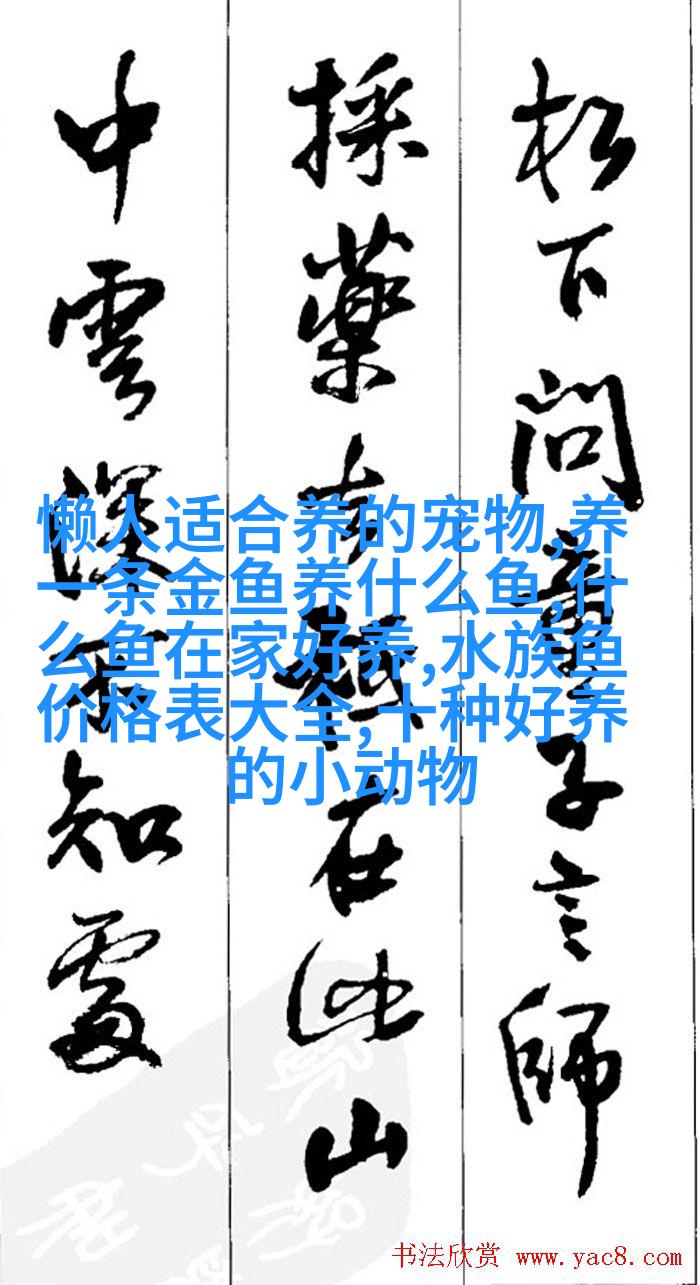 松下问童子言師
採藥去祗在此山
中雲深不知處
懒人适合养的宠物,养
一条金鱼养什么鱼,什
么鱼在家好养,水族鱼
价格表大全,十种好养
的小动物
书法欣赏 www.yac8.com